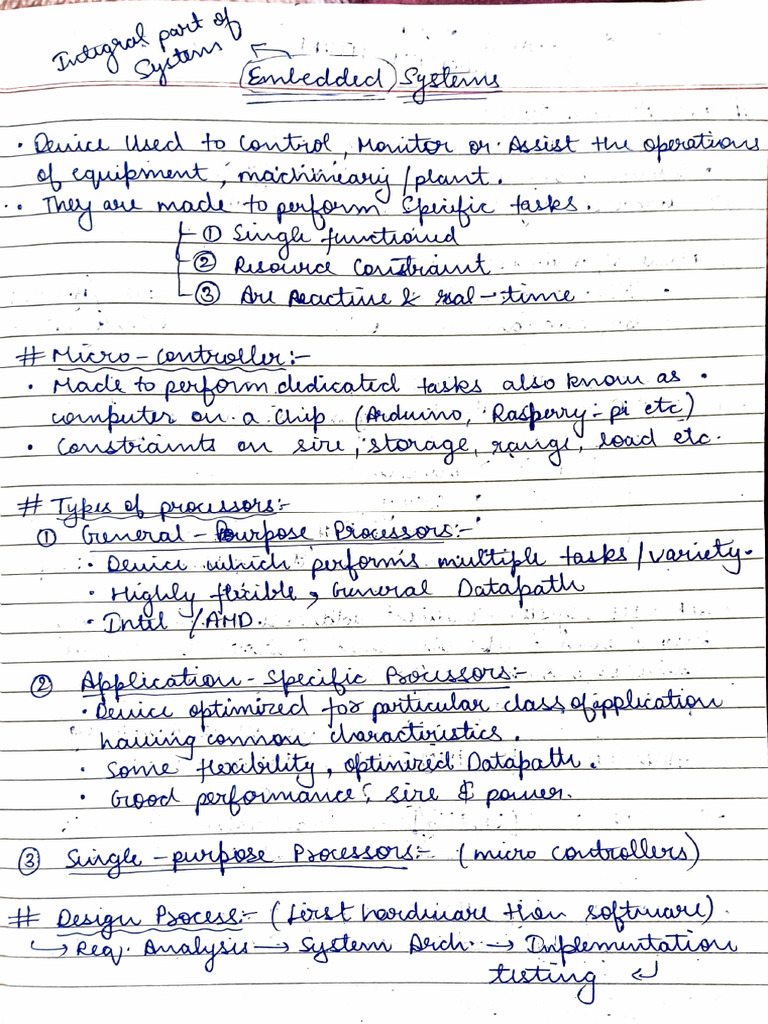 Integral part of
System
Embedded Systems
• Device Used to Control, Monitor or Assist the operations
of equipment, machineary/plant.
• They are made to perform Specific tasks.
① Single functioned
② Resource Constraint
③ Are Reactive & real-time
# Micro-Controller:-
• Made to perform dedicated tasks also know as
computer on a chip (Arduino, Raspberry-pi etc)
• Constraints on size, storage, range, load etc.
# Types of processors:-
① General-Purpose Processors:-
• Device which performs multiple tasks/variety.
• Highly flexible, General Datapath
• Intil / AMD.
② Application-Specific Processors:-
• Device optimized for particular class of application
having common characteristics.
• Some flexibility, optimized Datapath.
• Good performance, size & power.
③ Single-purpose Processors:- (micro controllers)
# Design Process:- (first hardware then software).
↳ Req. Analysis → System Arch. → Implementation
testing ↵